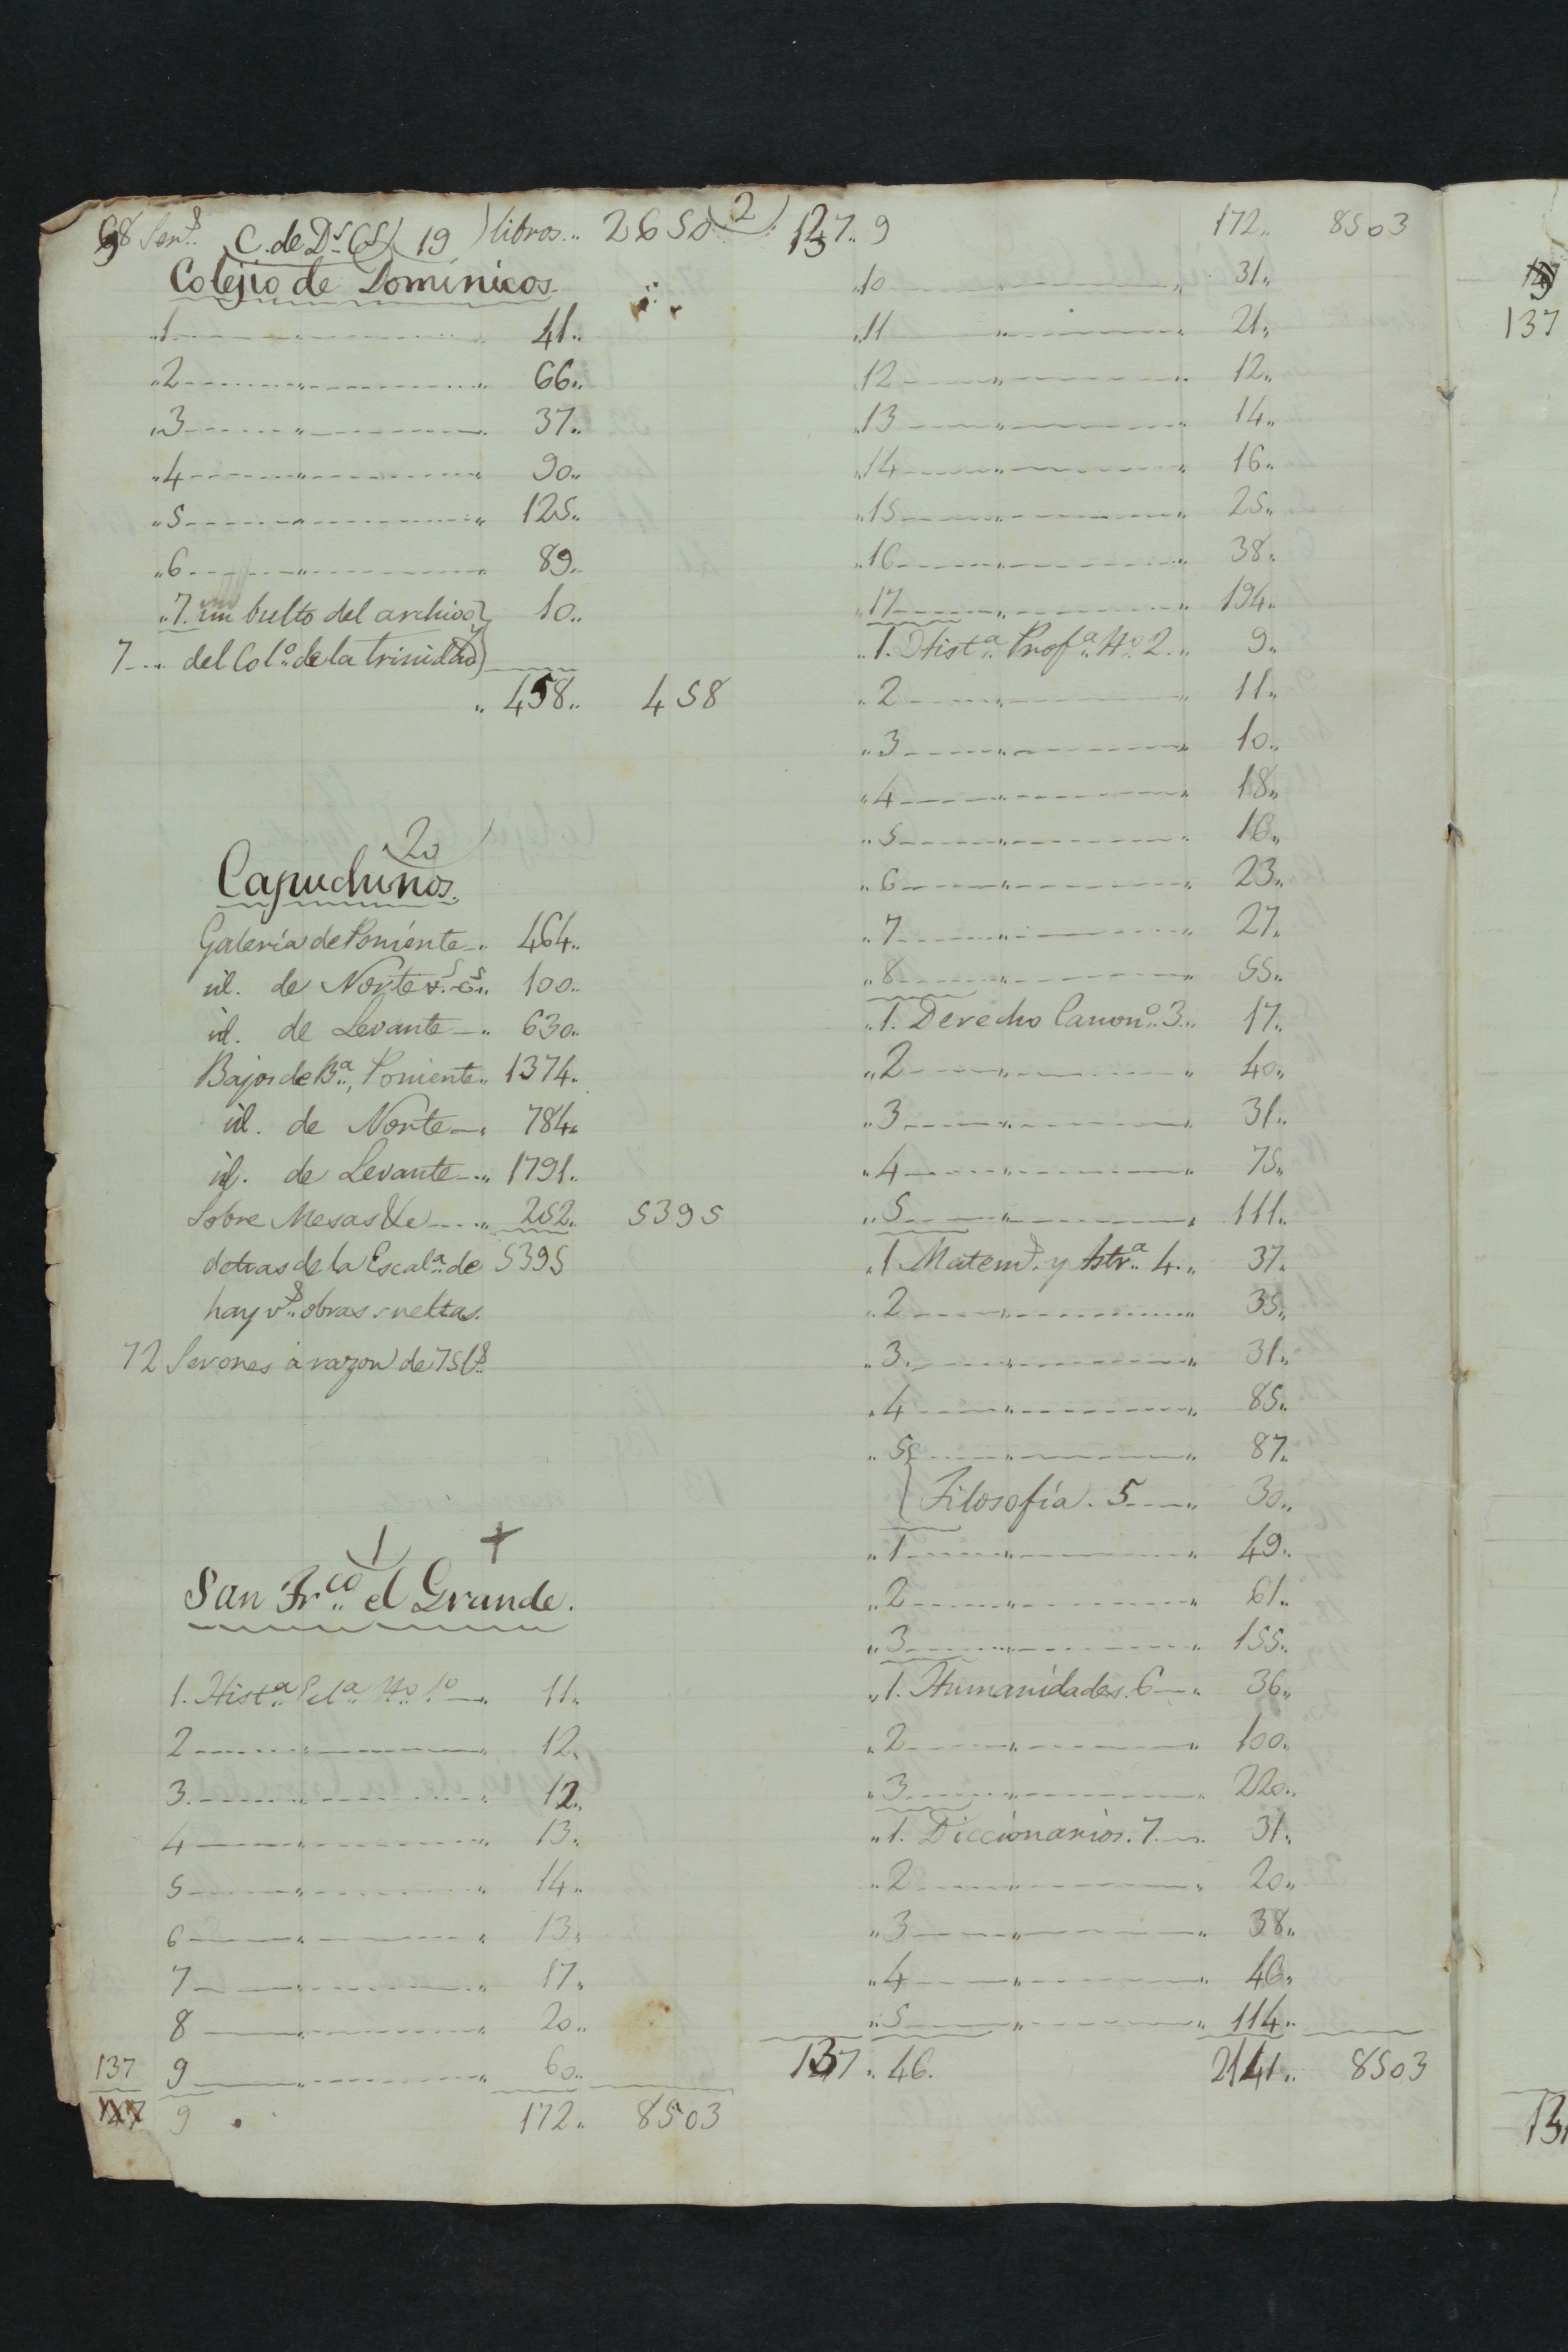 68 Ser.s C. de D.s C.s (19) libros.. 2650
Colejio de Dominicos.
"1 " 41..
"2 " 66..
"3 " 37..
"4 " 90..
"5 " 125..
"6 " 89..
"7. un bulto del archivo 10..
7 ... del Col.o de la trinidad
" 458.. 458
20
Capuchinos.
Galería de Poniente 464..
id. de Norte 100..
id. de Levante 630..
Bajos de B.a, Poniente 1374.
id. de Norte 784.
id. de Levante 1791.
Sobre Mesas &c 252. 5395
detras de la Escal.a de 5395
hay v.s obras sueltas.
72 Serones à razon de 75 l.s
1 +
San Fr.co el Grande.
1. Hist.a Ecl.a N.o 1.o 11.
2 " 12.
3 " 12.
4 " 13.
5 " 14.
6 " 13.
7 " 17.
8 " 20..
137 9 " 60..
127 9 172. 8503
2
137.. 9 172.. 8503
"10 " 31.
"11 " 21.
"12 " 12.
"13 " 14.
"14 " 16.
"15 " 25.
"16 " 38.
"17 " 194.
"1. Hist.a Prof.a N.o 2.. 9.
"2 " 11.
"3 " 10.
"4 " 18.
"5 " 16.
"6 " 23.
"7 " 27.
"8 " 55.
"1. Derecho Canon.o 3.. 17.
"2 " 40.
"3 " 31.
"4 " 75.
"5 " 111.
"1 Matem.s y Astr.a 4.. 37.
"2 " 35.
"3 " 31.
"4 " 85.
"5 " 87.
Filosofía. 5 30..
"1 " 49.
"2 " 61.
"3 " 155.
"1. Humanidades. 6 36.
"2 " 100.
"3 " 220.
"1. Diccionarios. 7 31.
"2 " 20.
"3 " 38.
"4 " 46.
"5 " 114.
137. 46. 2141.. 8503
137